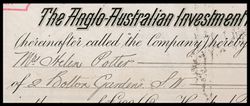 The Anglo-Australian Investment
(hereinafter called the Company) hereby
Mrs Helen Potter
of 2 Bolton Gardens S.W